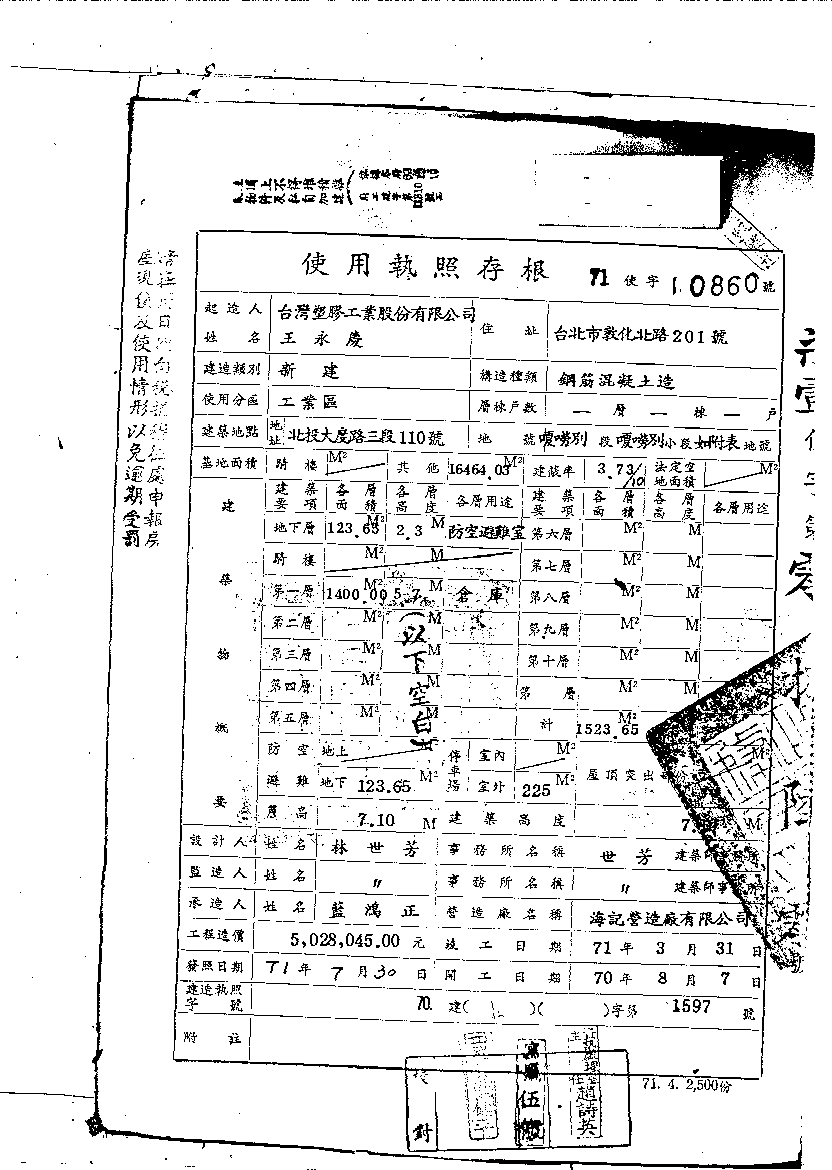 使用執照存根 71 使字 10860 號
起造人姓名 台灣塑膠工業股份有限公司 王永慶 住址 台北市敦化北路201號
建造類別 新建 構造種類 鋼筋混凝土造
使用分區 工業區 層棟戶數 — 層 — 棟 — 戶
建築地點 地址 北投大度路三段110號 地號 嗄嘮別 段 嗄嘮別 小段 如附表 地號
基地面積 騎樓 M² 其他 16464.03 M² 建蔽率 3.73/10 法定空地面積 M²
建築物概要
建築要項 各層面積 各層高度 各層用途 建築要項 各層面積 各層高度 各層用途
地下層 123.65 M² 2.3 M 防空避難室 第六層 M² M
騎樓 M² M 第七層 M² M
第一層 1400.00 M² 5.7 M 倉庫 第八層 M² M
第二層 M² M 第九層 M² M
第三層 M² M 第十層 M² M
第四層 M² M 第 層 M² M
第五層 M² M 計 1523.65 M²
(以下空白)
防空避難 地上 M² 停車場 室內 M²
地下 123.65 M² 室外 225 M² 屋頂突出
簷高 7.10 M 建築高度 7. M
設計人 姓名 林世芳 事務所名稱 世芳 建築師事務所
監造人 姓名 〃 事務所名稱 〃 建築師事務所
承造人 姓名 藍鴻正 營造廠名稱 海記營造廠有限公司
工程造價 5,028,045.00 元 竣工日期 71 年 3 月 31 日
發照日期 71 年 7 月 30 日 開工日期 70 年 8 月 7 日
建造執照字號 70. 建( )( )字第 1597 號
附註
校對
趙詩英
71. 4. 2,500份
房屋現值及使用情形以免逾期受罰